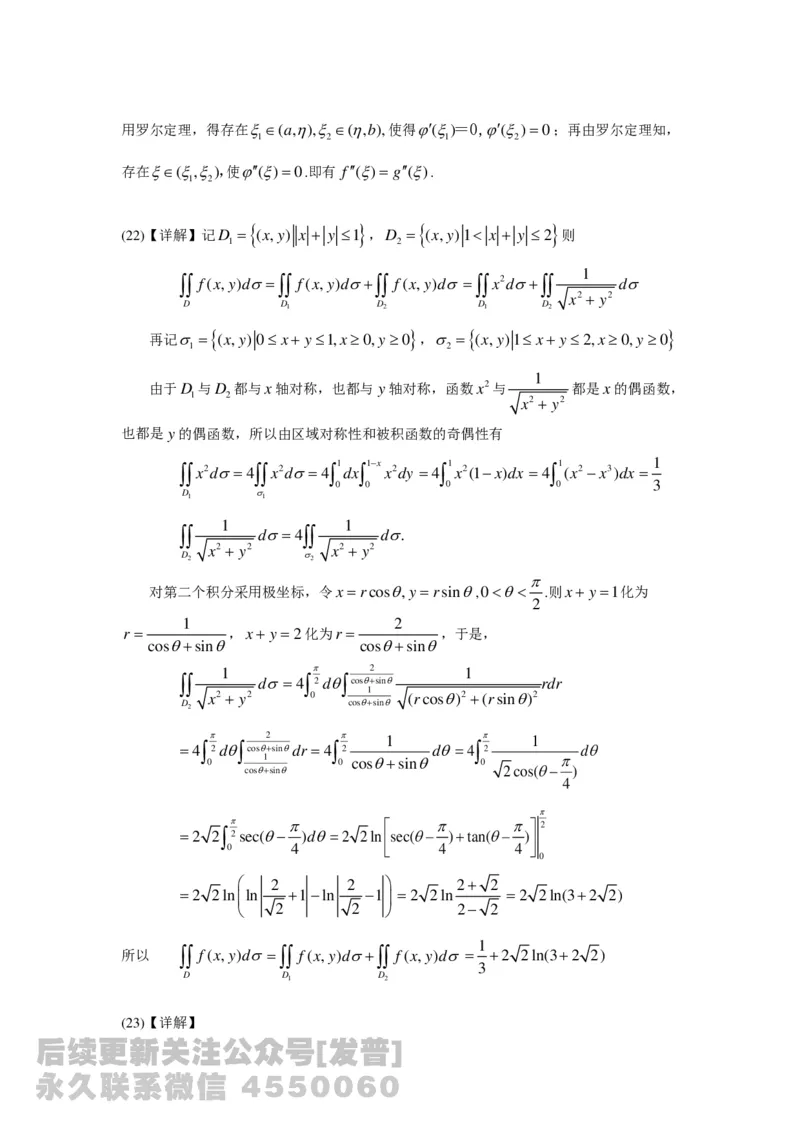 用罗尔定理，得存在ξ₁∈(a,η),ξ₂∈(η,b),使得φ′(ξ₁)=0,φ′(ξ₂)=0；再由罗尔定理知，
存在ξ∈(ξ₁,ξ₂),使φ″(ξ)=0.即有 f″(ξ)=g″(ξ).
(22)【详解】记D₁={(x,y)||x|+|y|≤1}，D₂={(x,y)|1<|x|+|y|≤2}则
∬_D f(x,y)dσ=∬_{D₁} f(x,y)dσ+∬_{D₂} f(x,y)dσ=∬_{D₁}x²dσ+∬_{D₂} 1/√(x²+y²) dσ
再记σ₁={(x,y)|0≤x+y≤1,x≥0,y≥0}，σ₂={(x,y)|1≤x+y≤2,x≥0,y≥0}
由于D₁与D₂都与x轴对称，也都与y轴对称，函数x²与 1/√(x²+y²) 都是x的偶函数，
也都是y的偶函数，所以由区域对称性和被积函数的奇偶性有
∬_{D₁}x²dσ=4∬_{σ₁}x²dσ=4∫₀¹dx∫₀^{1−x}x²dy=4∫₀¹x²(1−x)dx=4∫₀¹(x²−x³)dx=1/3
∬_{D₂} 1/√(x²+y²) dσ=4∬_{σ₂} 1/√(x²+y²) dσ.
对第二个积分采用极坐标，令x=rcosθ,y=rsinθ,0<θ<π/2.则x+y=1化为
r=1/(cosθ+sinθ)，x+y=2化为r=2/(cosθ+sinθ)，于是，
∬_{D₂} 1/√(x²+y²) dσ=4∫₀^{π/2}dθ∫_{1/(cosθ+sinθ)}^{2/(cosθ+sinθ)} 1/√((rcosθ)²+(rsinθ)²) rdr
=4∫₀^{π/2}dθ∫_{1/(cosθ+sinθ)}^{2/(cosθ+sinθ)}dr=4∫₀^{π/2} 1/(cosθ+sinθ) dθ=4∫₀^{π/2} 1/(√2cos(θ−π/4)) dθ
=2√2∫₀^{π/2}sec(θ−π/4)dθ=2√2ln[sec(θ−π/4)+tan(θ−π/4)]₀^{π/2}
=2√2ln(ln|2/√2+1|−ln|2/√2−1|)=2√2ln (2+√2)/(2−√2)=2√2ln(3+2√2)
所以 ∬_D f(x,y)dσ=∬_{D₁} f(x,y)dσ+∬_{D₂} f(x,y)dσ=1/3+2√2ln(3+2√2)
(23)【详解】
后续更新关注公众号[发普]
永久联系微信 4550060